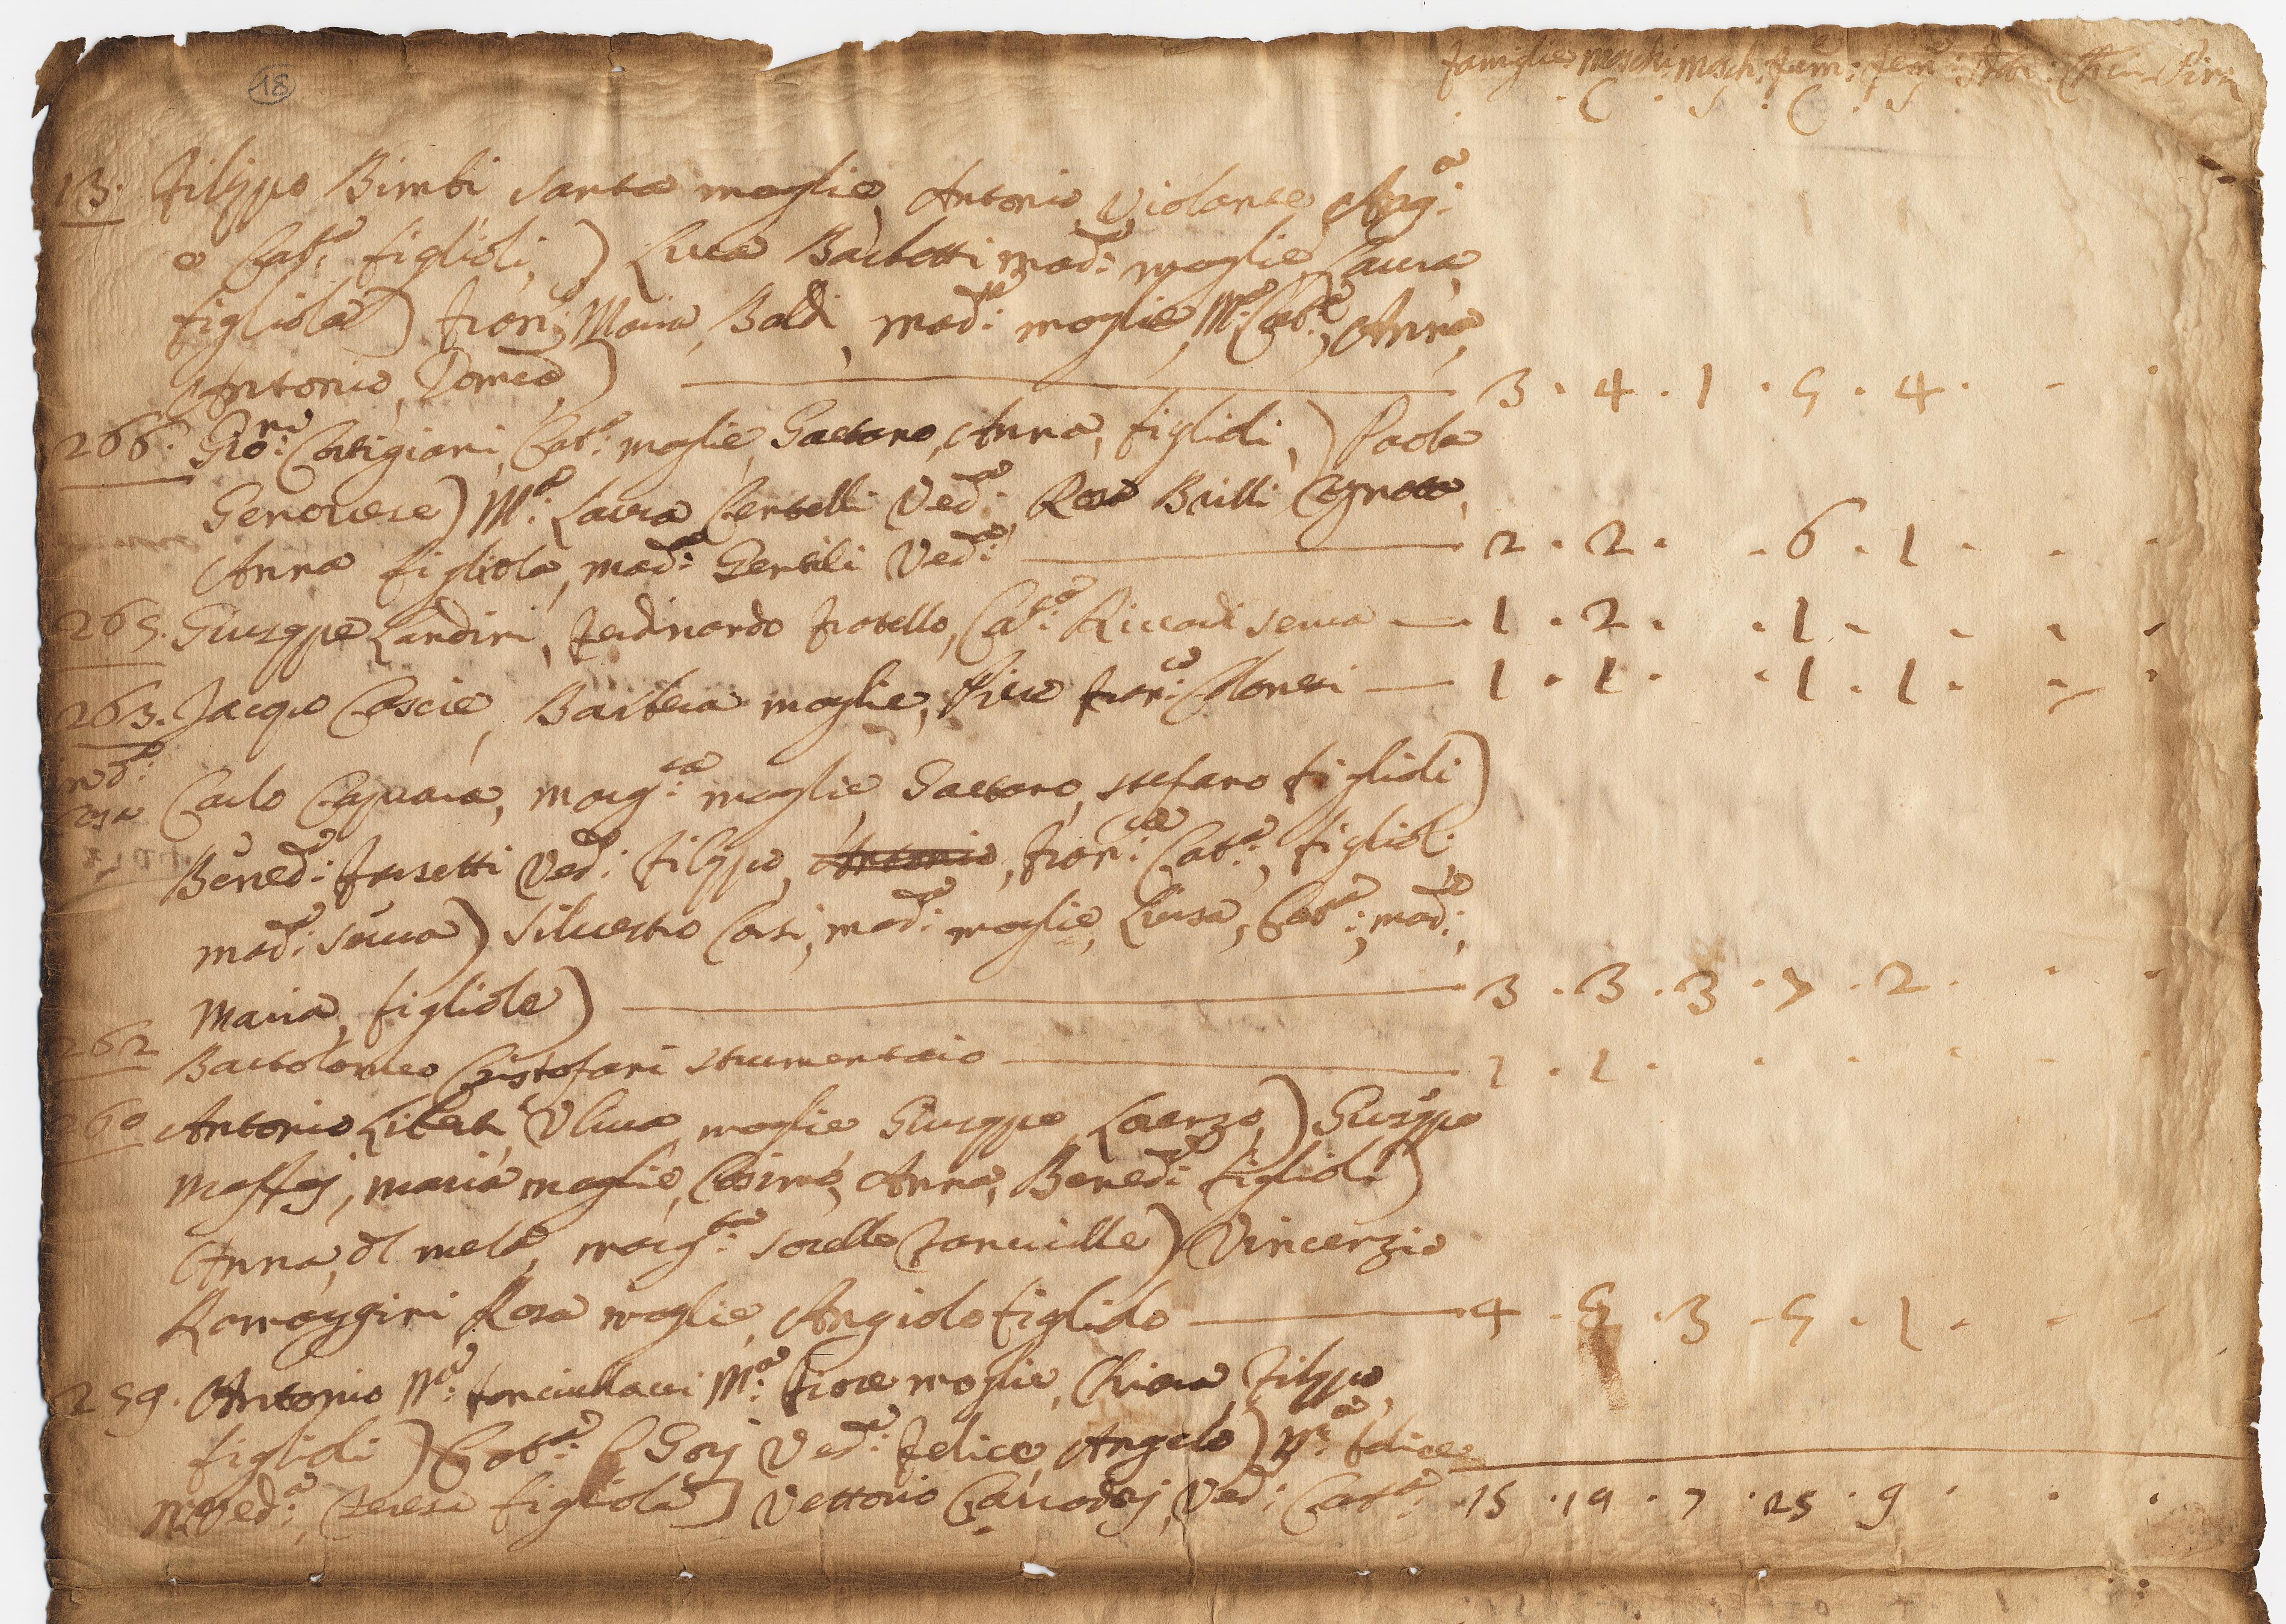 18
famiglie maschi masch: fem: fem:
. C . S . C . S
13. Filippo Bimbi Santa moglie, Antonio, Violante, Marg:a
e Cat:a figlioli,) Luca Barbetti mad:a moglie, Laura,
figliola) Fran:co Maria, Baldi, mad:a moglie, M:a Cat:a, Anna,
Antonio, Dom:co) 3 . 4 . 1 . 5 . 4 .
266. Gio:ni Cortigiani, Cat:a moglie, Gaetano, Anna, figlioli,) Paola
Genovese) M:a Laura Bertelli Ved:a Rosa Brilli Cognata,
Anna figliola, mad:a Gentili Ved:a 2 . 2 . . 6 . 1 .
265. Giuseppe Landini, Ferdinando fratello, Cat:a Riccardi serva 1 . 2 . . 1 .
263. Jacopo Cascie, Barbera moglie, Piera Fran:ca Colonesi 1 . 1 . . 1 . 1 .
Carlo Caprara, Marg:ta moglie, Gaetano, Stefano figlioli)
Bened:a Fossetti Ved:a Filippo, Antonio, Fran:ca Cat:a, figlioli
mad:a serva) Silvestro Casi, mad:a moglie, Luisa, Cat:a, mad:a,
Maria, figliole) 3 . 3 . 3 . 7 . 2 .
262 Bartolomeo Cristofari strumentaio 1 . 1 .
260 Antonio Liberti, Uliva moglie, Giuseppe, Lorenzo,) Giuseppe
Maffej, Maria moglie, Cosimo, Anna, Bened:a figlioli)
Anna, del mela, Marg:ta sorelle fanciulle) Vincenzio
Romaggini Rosa moglie, Angiolo figliolo 4 . 5 . 3 . 5 . 1 .
259. Antonio M:a Fanciullacci M:a Fiore moglie, Chiara, Filippo,
figlioli) Cat:a Gorj Ved:a Felice, Angelo) M:a Felice
Ved:a, Teresa figliola] Vettorio Ved: Cat:a 15 . 19 . 7 . 25 . 9 .